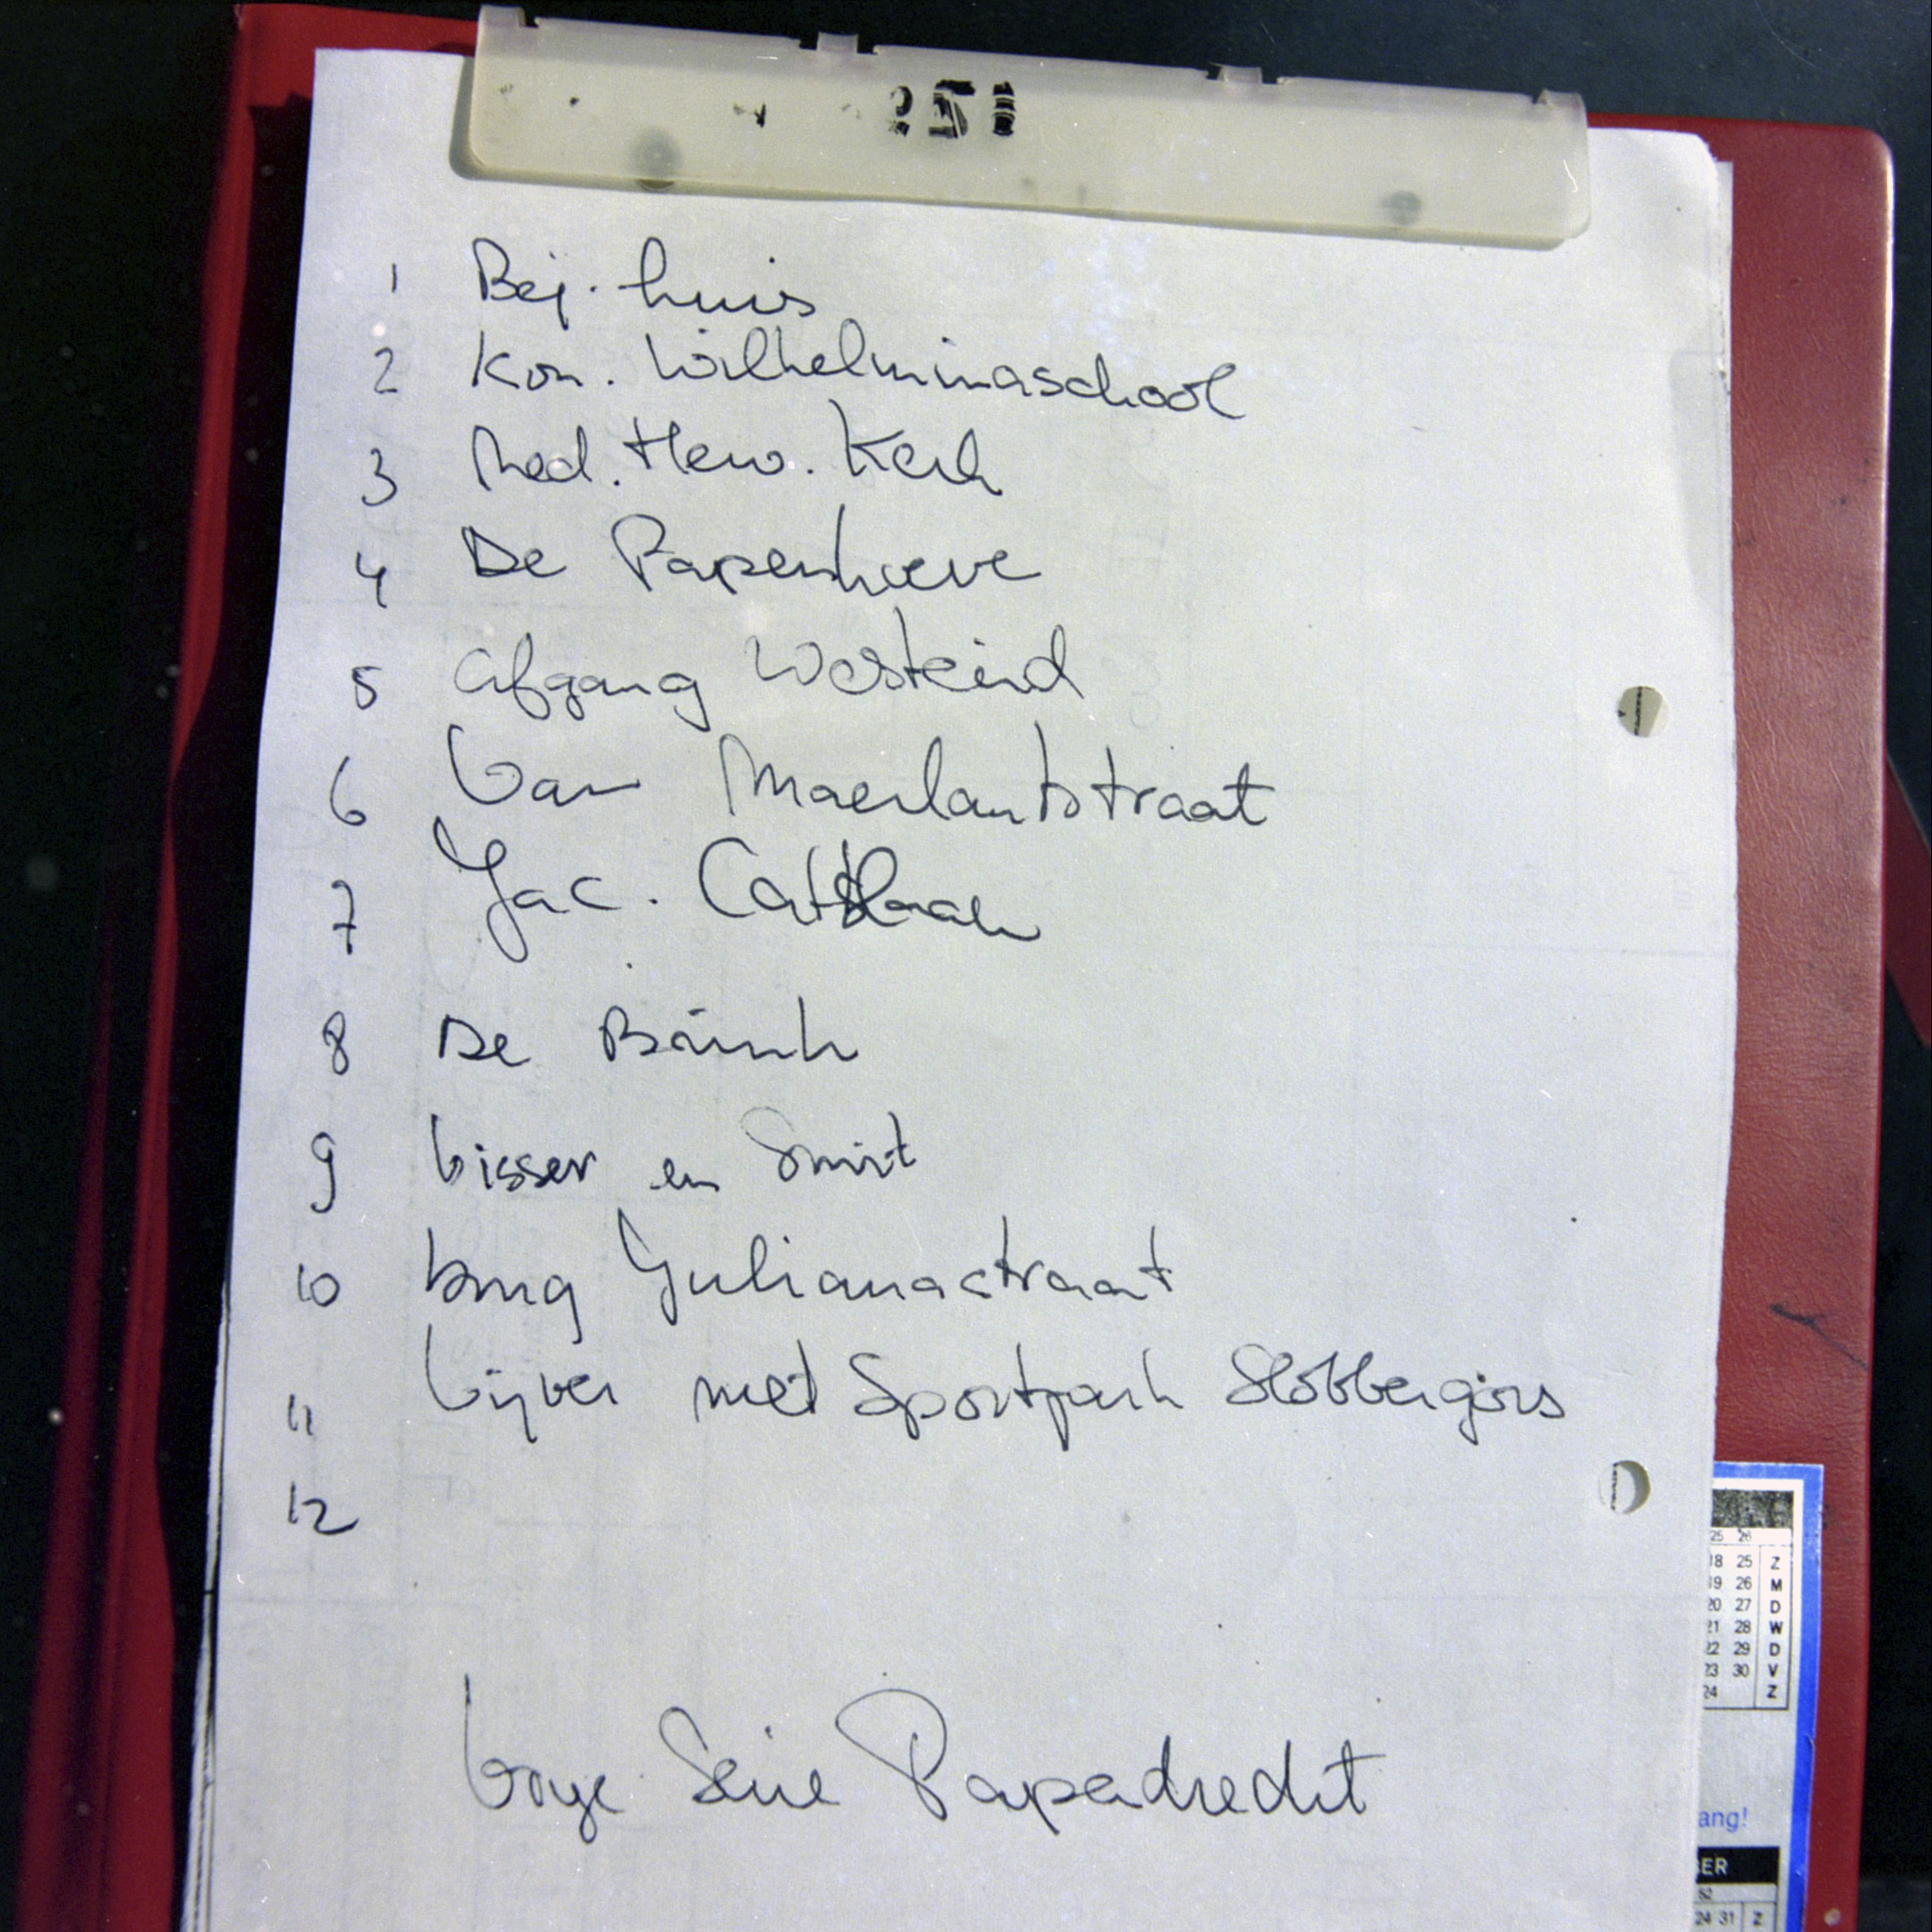 251
1 Bej. huis
2 Kon. Wilhelminaschool
3 Ned. Herv. Kerk
4 De Papenhoeve
5 afgang Westeind
6 Van Maerlantstraat
7 Jac. Catslaan
8 De Brink
9 Visser en Smit
10 brug Julianastraat
11 Vijver met Sportpark Slobbengors
12
Vorige Serie Papendrecht
25 26
18 25 Z
19 26 M
20 27 D
21 28 W
22 29 D
23 30 V
24 Z
ang!
BER
52
24 31 Z